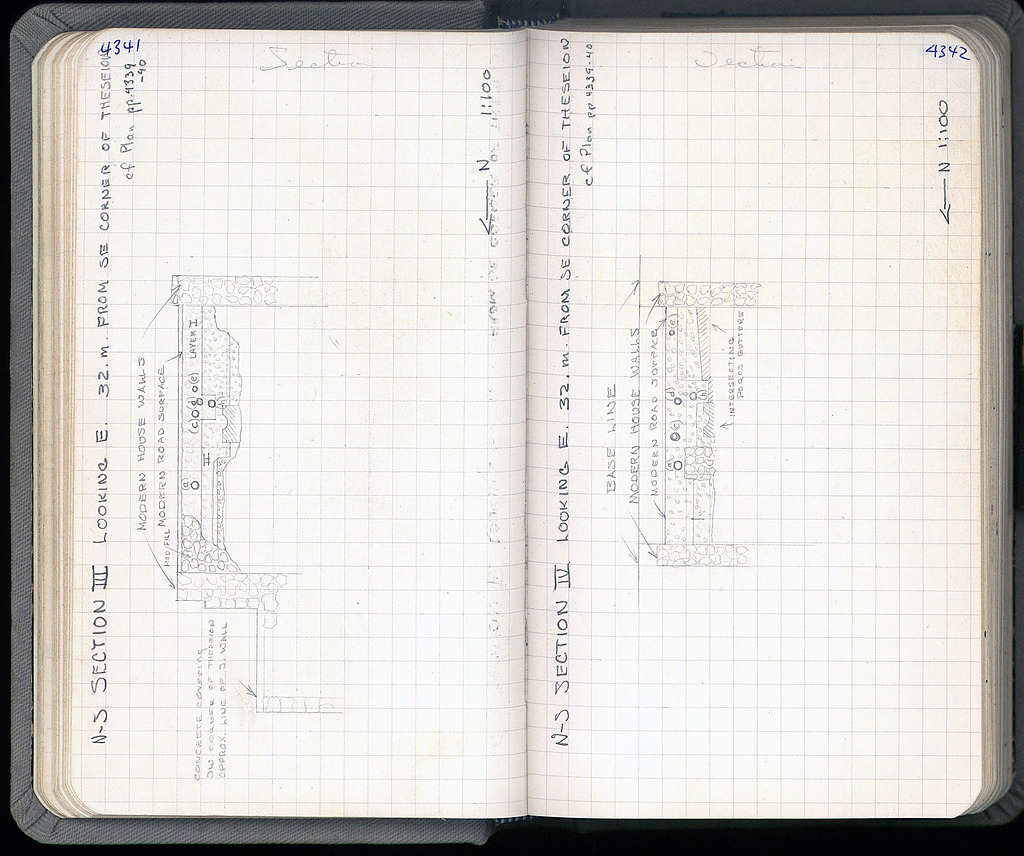 4341
Section
N-S SECTION III LOOKING E. 32.m. FROM SE CORNER OF THESEION
cf Plan pp. 4339
-40
1:100
N
MODERN HOUSE WALLS
MODERN ROAD SURFACE
MOD. FILL
LAYER I
II
(a)
(c)
(e)
CONCRETE COVERING
SW CORNER OF THESEION
APPROX. LINE OF S. WALL
4342
Section
N-S SECTION IV LOOKING E. 32.m. FROM SE CORNER OF THESEION
cf Plan pp. 4339-40
N 1:100
BASE LINE
MODERN HOUSE WALLS
MODERN ROAD SURFACE
(a)
(c)
(d)
(e)
(h)
INTERSECTING
POROS GUTTERS